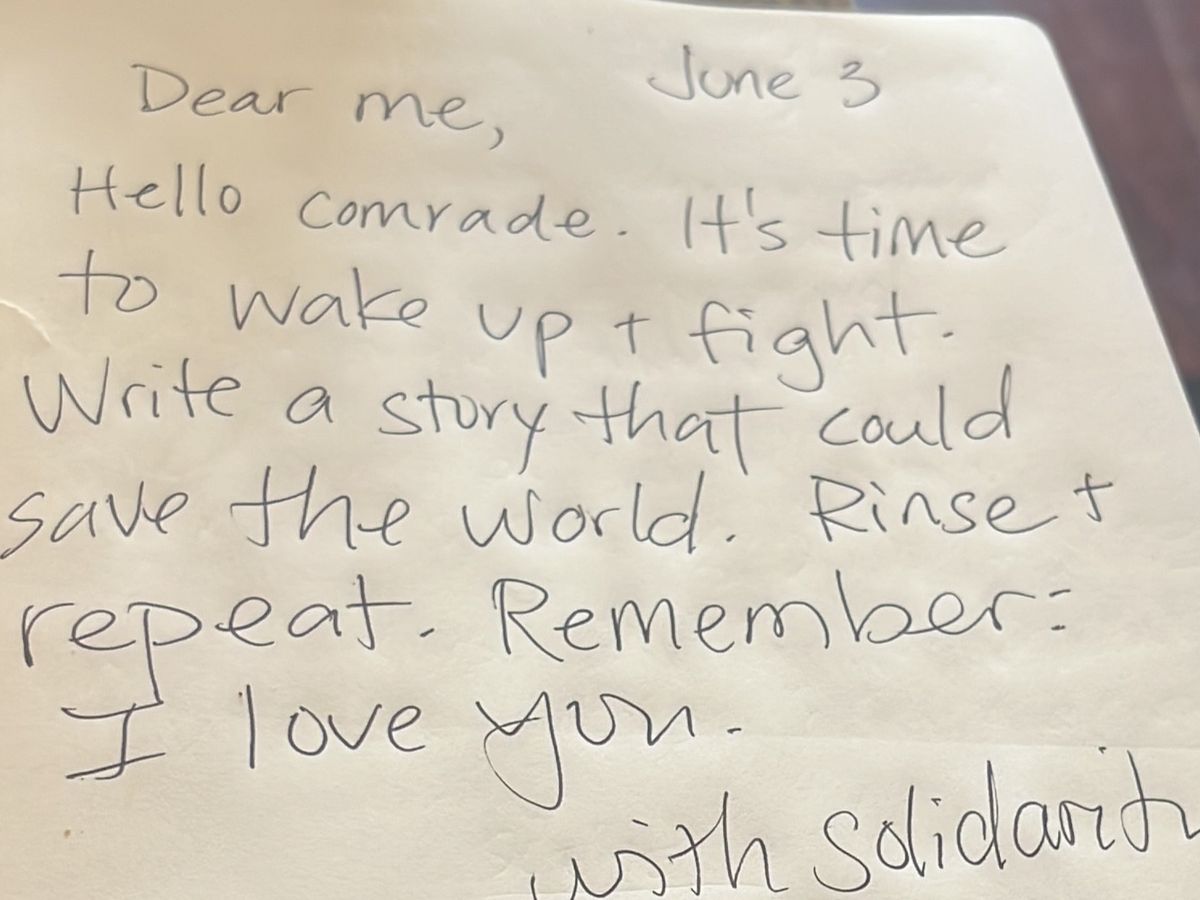 Dear me, June 3
Hello comrade. It's time
to wake up + fight.
Write a story that could
save the world. Rinse +
repeat. Remember:
I love you.
with solidarity